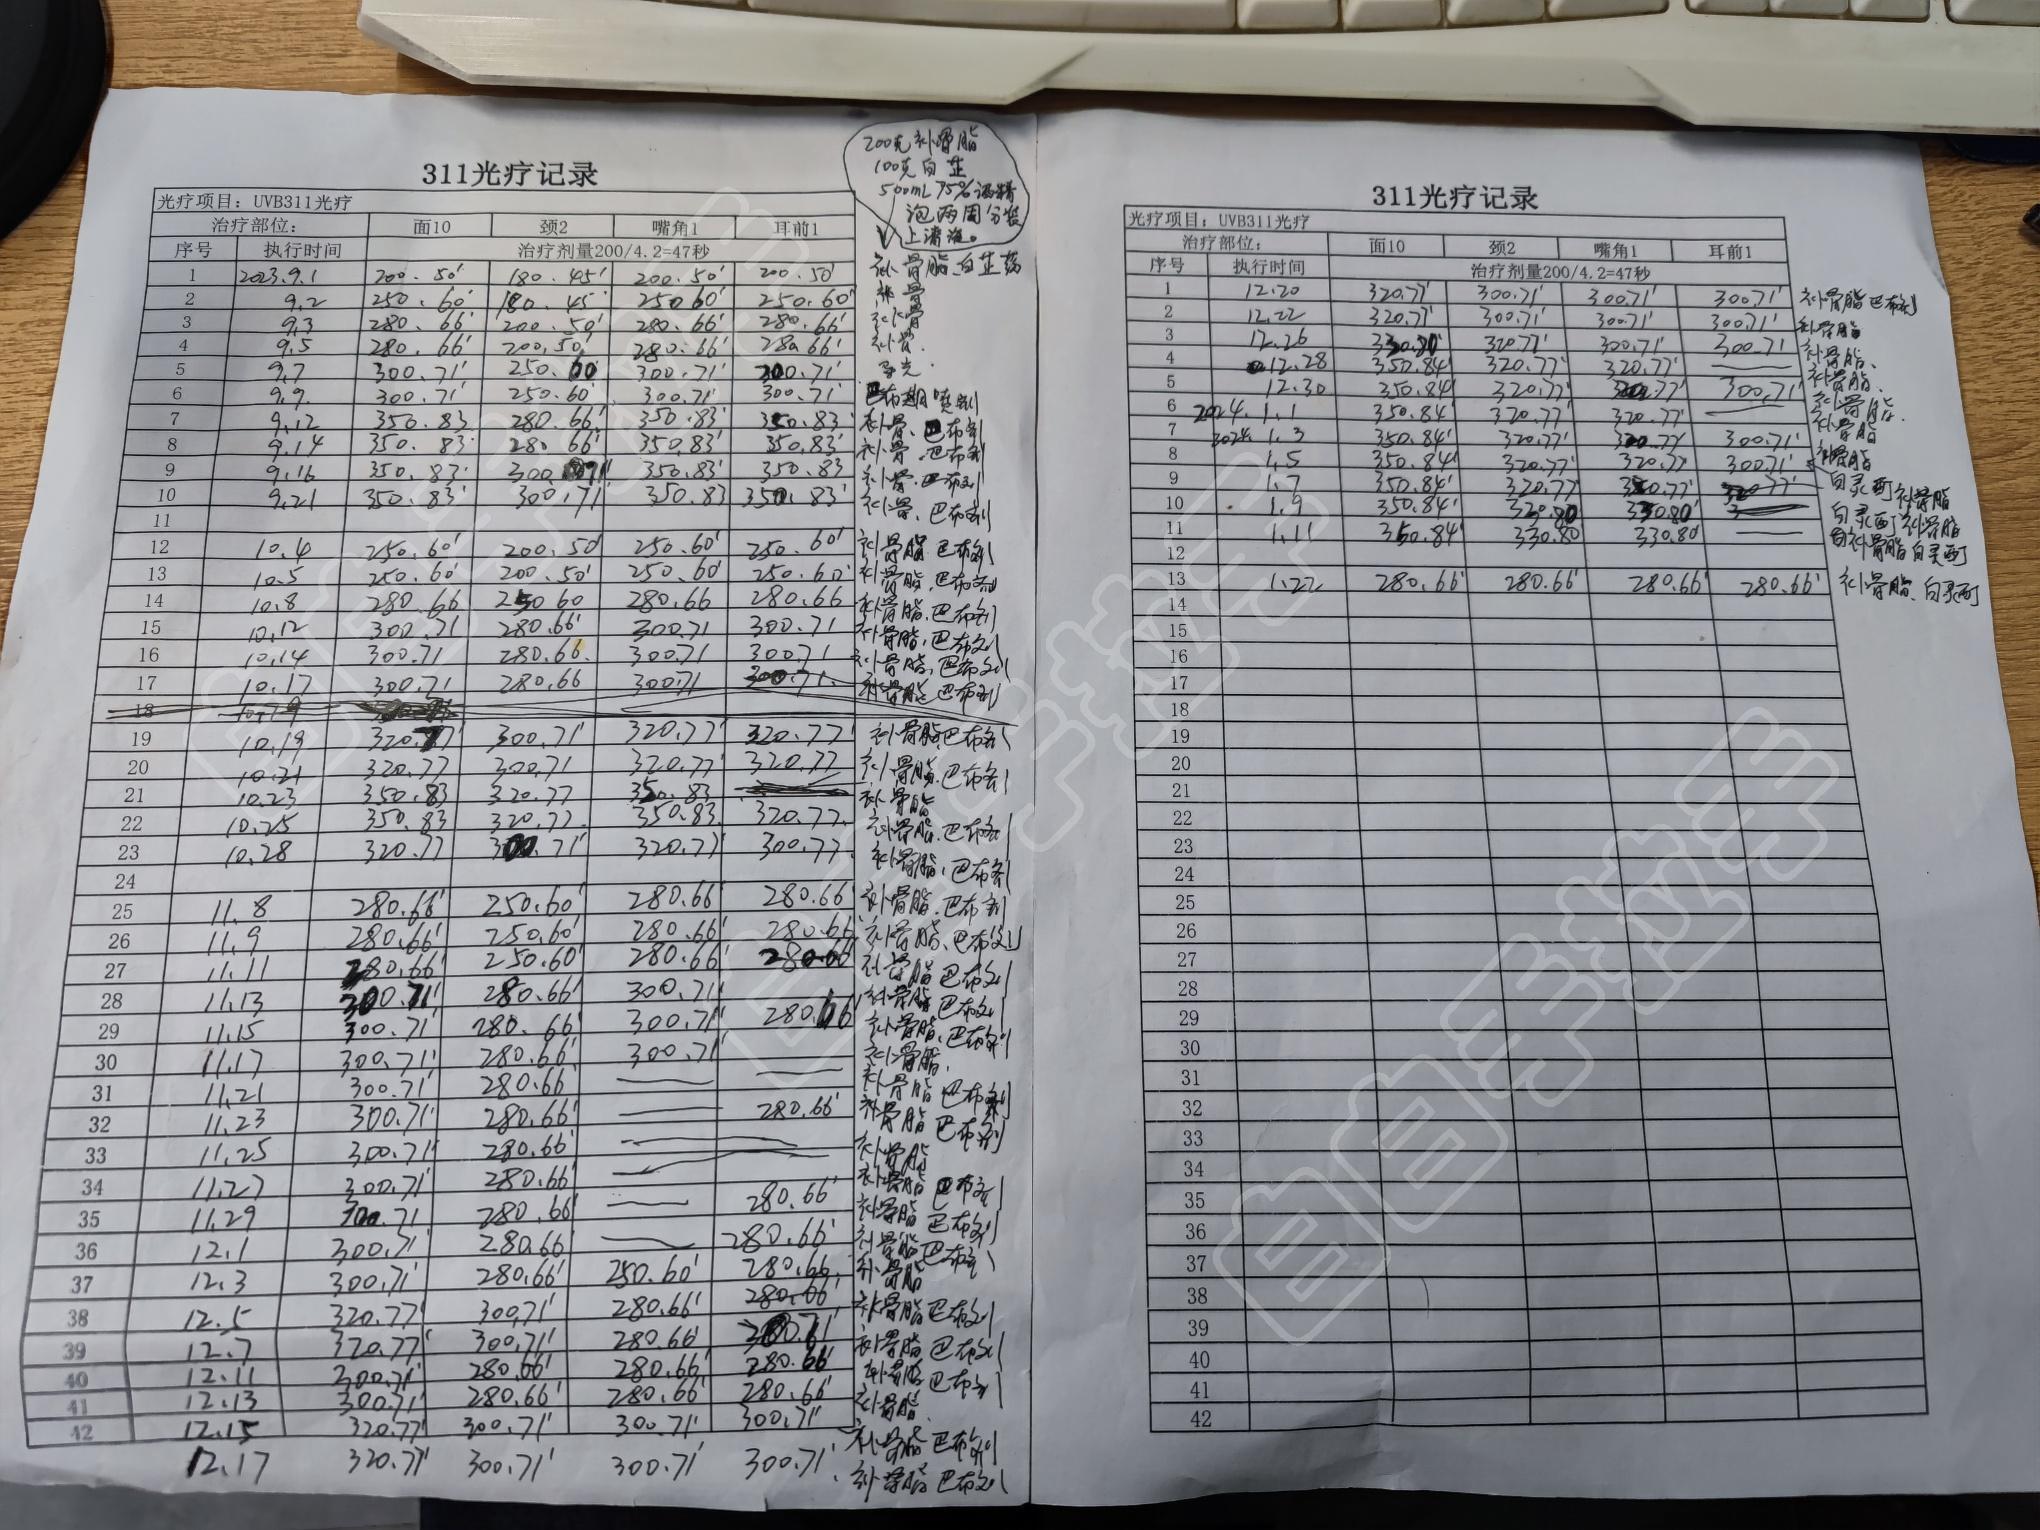 200克补骨脂
100克白芷
500mL 75%酒精
泡两周分装
上清液。
311光疗记录
光疗项目: UVB311光疗
治疗部位: 面10 颈2 嘴角1 耳前1
序号 执行时间 治疗剂量200/4.2=47秒
1 2023.9.1 200.50' 180.45' 200.50' 200.50' 补骨脂.白芷
2 9.2 250.60' 180.45' 250.60' 250.60' 补骨
3 9.3 280.66' 200.50' 280.66' 280.66' 补骨
4 9.5 280.66' 200.50' 280.66' 280.66' 补骨.
5 9.7 300.71' 250.60 300.71' 300.71'
6 9.9. 300.71' 250.60 300.71' 300.71' 巴布 喷剂
7 9.12 350.83 280.66' 350.83' 350.83' 补骨、巴布剂
8 9.14 350.83' 280.66' 350.83' 350.83' 补骨.巴布剂
9 9.16 350.83' 300.71' 350.83' 350.83 补骨.巴布剂
10 9.21 350.83' 300.71' 350.83 350.83' 补骨、巴布剂
11
12 10.4 250.60' 200.50 250.60' 250.60' 补骨脂.巴布剂
13 10.5 250.60' 200.50' 250.60' 250.60' 补骨脂.巴布剂
14 10.8 280.66 250.60 280.66 280.66 补骨脂.巴布剂
15 10.12 300.71 280.66' 300.71 300.71 补骨脂.巴布剂
16 10.14 300.71 280.66. 300.71 300.71 补骨脂.巴布剂
17 10.17 300.71 280.66 300.71 300.71. 补骨脂 巴布剂
18 10.19
19 10.19 320.77' 300.71' 320.77' 320.77' 补骨脂.巴布剂
20 10.21 320.77 300.71 320.77' 320.77 补骨脂.巴布剂
21 10.23 350.83 320.77 350.83 补骨脂
22 10.25 350.83 320.77. 350.83. 320.77. 补骨脂.巴布剂
23 10.28 320.77 300.71' 320.77' 300.77. 补骨脂,巴布剂
24
25 11.8 280.66' 250.60' 280.66' 280.66 补骨脂.巴布剂
26 11.9 280.66' 250.60' 280.66' 280.66 补骨脂、巴布剂
27 11.11 280.66' 250.60' 280.66' 280.66 补骨脂 巴布剂
28 11.13 300.71' 280.66' 300.71' 补骨脂 巴布剂
29 11.15 300.71' 280.66' 300.71' 280.66' 补骨脂.巴布剂
30 11.17 300.71' 280.66' 300.71' 补骨脂.
31 11.21 300.71' 280.66' — — 补骨脂 巴布剂
32 11.23 300.71' 280.66' — 280.66' 补骨脂 巴布剂
33 11.25 300.71' 280.66' — — 补骨脂
34 11.27 300.71' 280.66' — 补骨脂 巴布剂
35 11.29 300.71 280.66' — 280.66' 补骨脂 巴布剂
36 12.1 300.71' 280.66' — 280.66' 补骨脂 巴布剂
37 12.3 300.71' 280.66' 250.60' 280.66 补骨脂
38 12.5 320.77' 300.71' 280.66' 280.66' 补骨脂 巴布剂
39 12.7 320.77' 300.71' 280.66' 补骨脂 巴布剂
40 12.11 300.71' 280.66' 280.66' 280.66' 补骨脂 巴布剂
41 12.13 300.71' 280.66' 280.66' 280.66' 补骨脂.
42 12.15 320.77' 300.71' 300.71' 300.71' 补骨脂 巴布剂
12.17 320.71' 300.71' 300.71' 300.71' 补骨脂 巴布剂
311光疗记录
光疗项目: UVB311光疗
治疗部位: 面10 颈2 嘴角1 耳前1
序号 执行时间 治疗剂量200/4.2=47秒
1 12.20 320.77' 300.71' 300.71' 300.71' 补骨脂 巴布剂
2 12.22 320.77' 300.71' 300.71' 300.71' 补骨脂
3 12.26 330.80' 320.77' 300.71' 300.71 补骨脂.
4 12.28 350.84' 320.77' 320.77' — 补骨脂.
5 12.30 350.84' 320.77' 320.77' 300.71' 补骨脂
6 2024.1.1 350.84 320.77' 320.77' — 补骨脂
7 2024.1.3 350.84' 320.77' 320.77 300.71'
8 1.5 350.84' 320.77' 320.77' 300.71' 补骨脂
9 1.7 350.84' 320.77' 320.77' 320.77' 白灵酊 补骨脂
10 1.9 350.84' 330.80 330.80' 白灵酊 补骨脂
11 1.11 350.84' 330.80 330.80' — 补骨脂 白灵酊
12
13 1.22 280.66' 280.66' 280.66' 280.66' 补骨脂、白灵酊
14
15
16
17
18
19
20
21
22
23
24
25
26
27
28
29
30
31
32
33
34
35
36
37
38
39
40
41
42